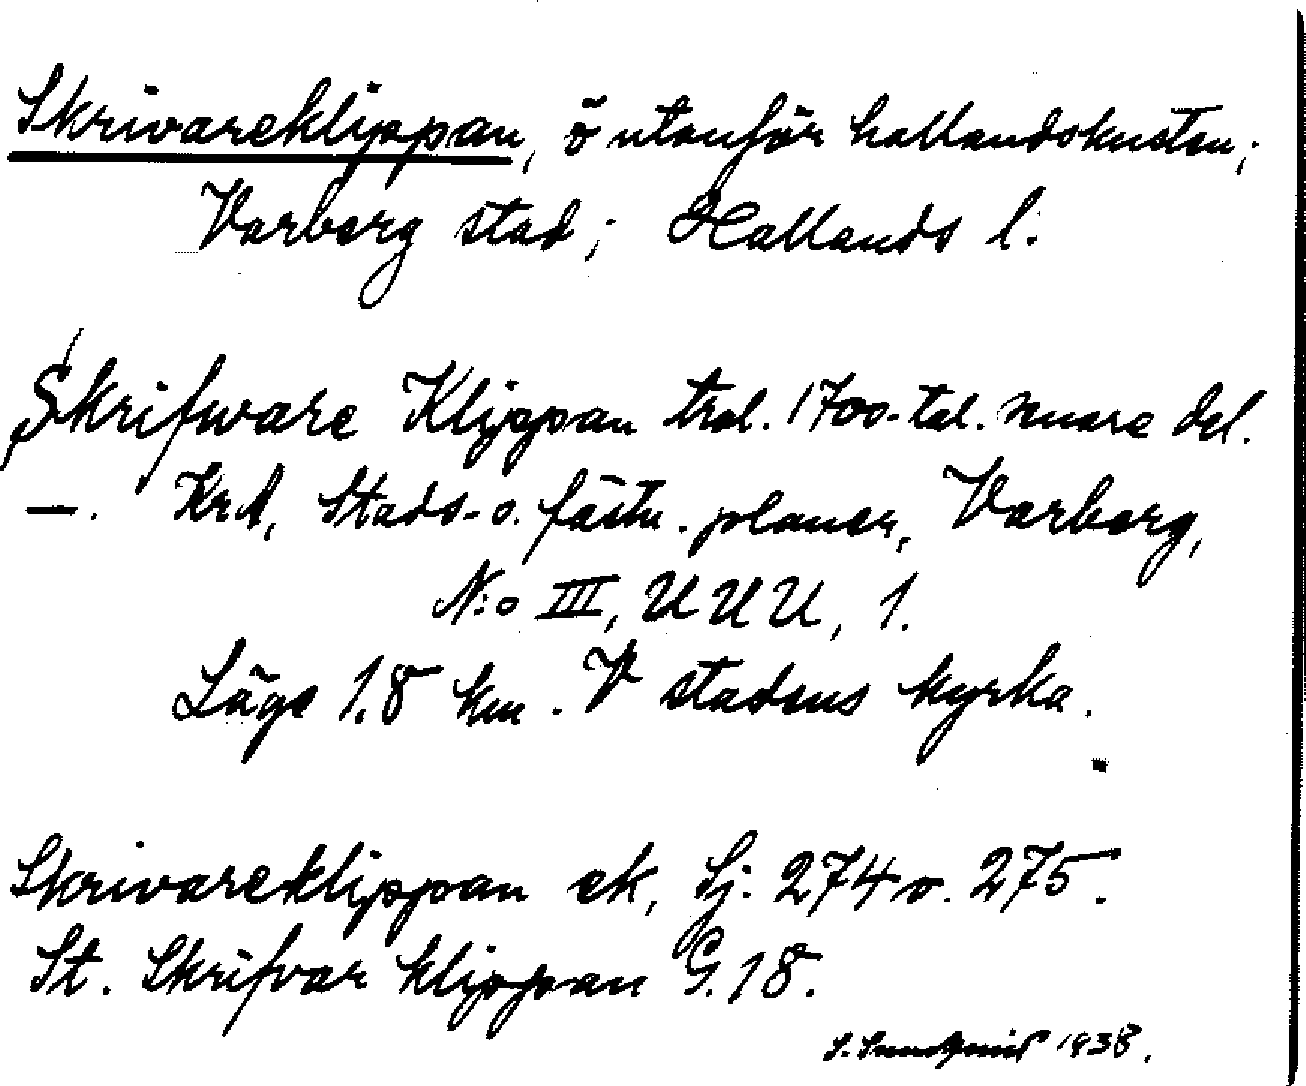 Skrivareklippan, ö utanför hallandskusten;
Varberg stad; Hallands l.
Skrifware Klippan trol. 1700-tal. nuare del.
—. KrA, Stads- o. fästn. planer, Varberg,
N:o III, UUU, 1.
Läge 1.8 km. V stadens kyrka.
Skrivareklippan ek, Sj. 274 o. 275.
St. Skrifvar klippan G. 18.
S. 1938.